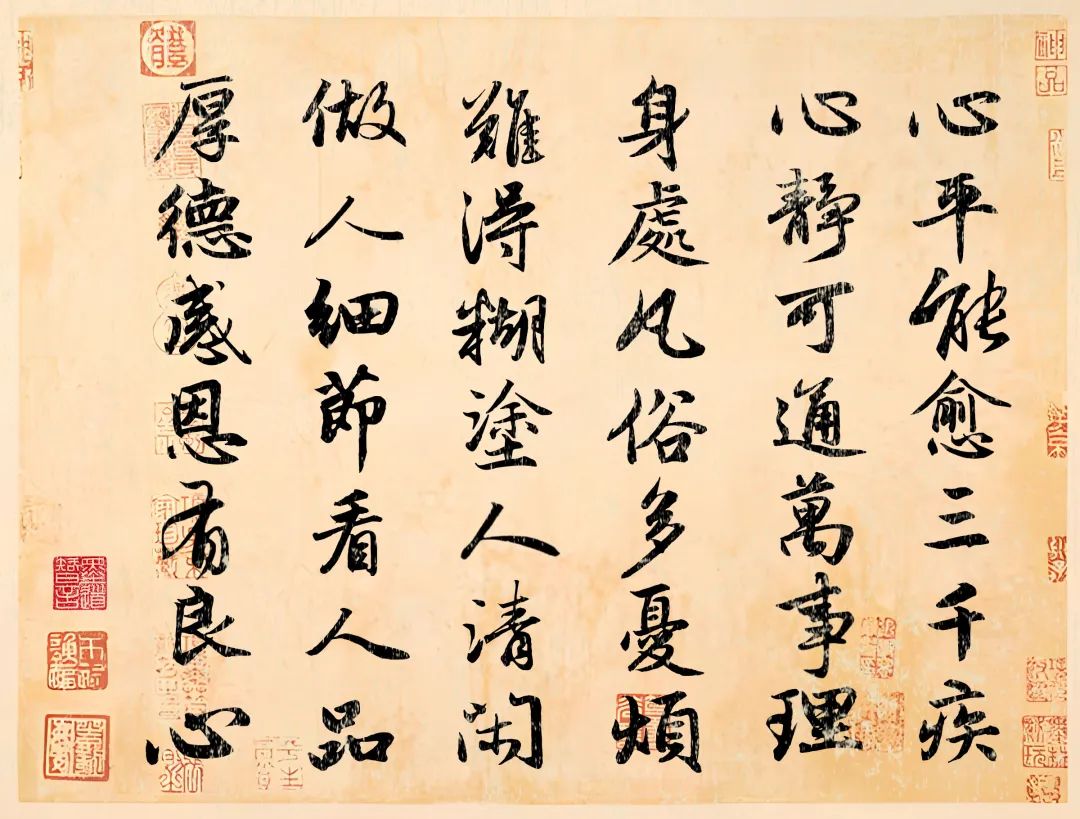 心平能愈三千疾
心静可通萬事理
身處凡俗多憂煩
難得糊塗人清閑
做人細節看人品
厚德感恩有良心